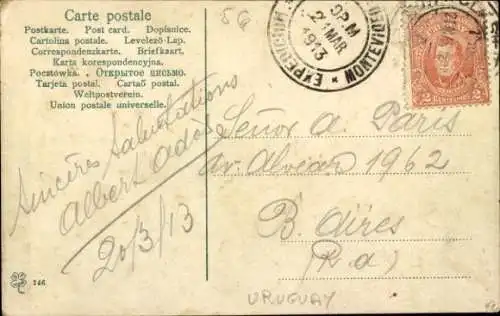 Carte postale
Postkarte. Post card. Dopisnice.
Cartolina postale. Levelező-Lap.
Correspondenzkarte. Briefkaart.
Karta korespondencyjna.
Pocztówka. Открытое письмо.
Tarjeta postal. Cartaŏ postal.
Weltpostverein.
Union postale universelle.
sincères salutations
Albert
20/3/13
146
EXPEDICION
9 PM
21 MAR
1913
MONTEVIDEO
2 CENTESIMOS 2
Señor A. Paris
Av. Alvear 1962
B. Aires
(R a)
URUGUAY